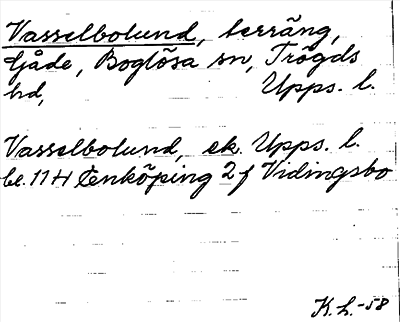 Vasselbolund, terräng,
Gåde, Boglösa sn, Trögds
hd, Upps. l.
Vasselbolund, ek. Upps. l.
bl. 11 H Enköping 2 f Vidingsbo
K. L. -58